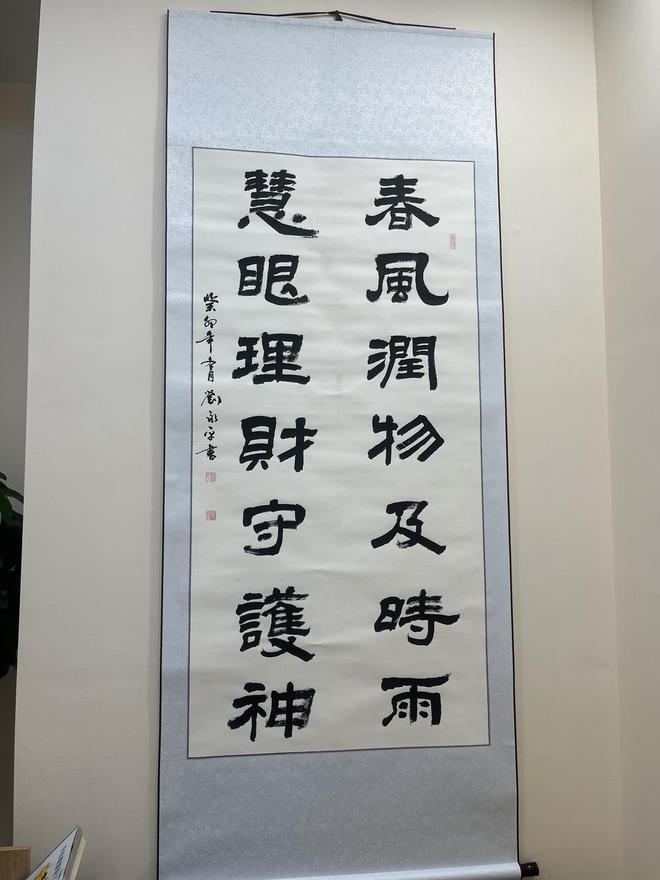 春風潤物及時雨
慧眼理財守護神
癸卯年 劉永平書